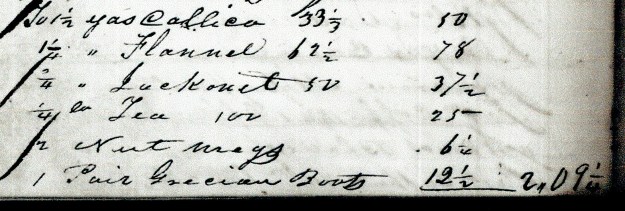 To 1½ yds Callico 33⅓ 50
1¼ " Flannel 62½ 78
¾ " Jackonet 50 37½
¼ lb Tea 100 25
2 Nut megs 6¼
1 Pair Grecian Boots 12½ 2,,09¼